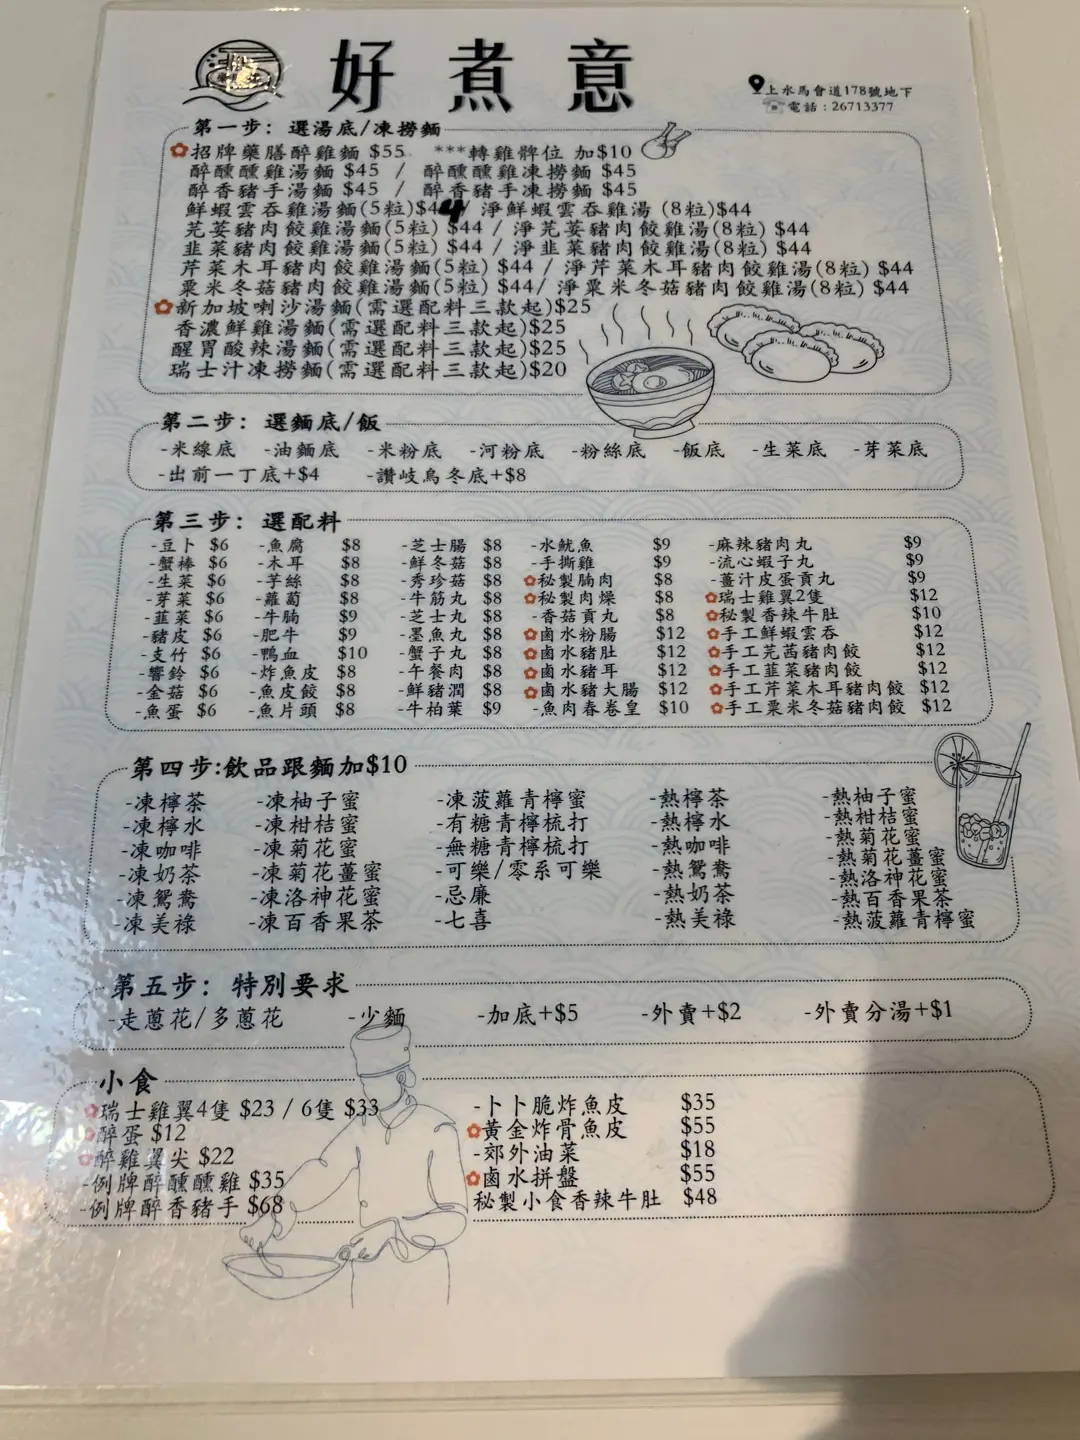 好煮意
上水馬會道178號地下
電話：26713377
第一步：選湯底/凍撈麵
招牌藥膳醉雞麵 $55 ***轉雞髀位 加$10
醉醺醺雞湯麵 $45 / 醉醺醺雞凍撈麵 $45
醉香豬手湯麵 $45 / 醉香豬手凍撈麵 $45
鮮蝦雲吞雞湯麵(5粒)$44/ 淨鮮蝦雲吞雞湯 (8粒)$44
芫荽豬肉餃雞湯麵(5粒) $44 / 淨芫荽豬肉餃雞湯(8粒) $44
韭菜豬肉餃雞湯麵(5粒) $44 / 淨韭菜豬肉餃雞湯(8粒) $44
芹菜木耳豬肉餃雞湯麵(5粒) $44 / 淨芹菜木耳豬肉餃雞湯(8粒) $44
粟米冬菇豬肉餃雞湯麵(5粒) $44/ 淨粟米冬菇豬肉餃雞湯(8粒) $44
新加坡喇沙湯麵(需選配料三款起)$25
香濃鮮雞湯麵(需選配料三款起)$25
醒胃酸辣湯麵(需選配料三款起)$25
瑞士汁凍撈麵(需選配料三款起)$20
第二步：選麵底/飯
-米線底 -油麵底 -米粉底 -河粉底 -粉絲底 -飯底 -生菜底 -芽菜底
-出前一丁底+$4 -讚岐烏冬底+$8
第三步：選配料
-豆卜 $6 -魚腐 $8 -芝士腸 $8 -水魷魚 $9 -麻辣豬肉丸 $9
-蟹棒 $6 -木耳 $8 -鮮冬菇 $8 -手撕雞 $9 -流心蝦子丸 $9
-生菜 $6 -芋絲 $8 -秀珍菇 $8 秘製腩肉 $8 -薑汁皮蛋貢丸 $9
-芽菜 $6 -蘿蔔 $8 -牛筋丸 $8 秘製肉燥 $8 瑞士雞翼2隻 $12
-韮菜 $6 -牛腩 $9 -芝士丸 $8 -香菇貢丸 $8 秘製香辣牛肚 $10
-豬皮 $6 -肥牛 $9 -墨魚丸 $8 鹵水粉腸 $12 手工鮮蝦雲吞 $12
-支竹 $6 -鴨血 $10 -蟹子丸 $8 鹵水豬肚 $12 手工芫茜豬肉餃 $12
-響鈴 $6 -炸魚皮 $8 -午餐肉 $8 鹵水豬耳 $12 手工韮菜豬肉餃 $12
-金菇 $6 -魚皮餃 $8 -鮮豬潤 $8 鹵水豬大腸 $12 手工芹菜木耳豬肉餃 $12
-魚蛋 $6 -魚片頭 $8 -牛柏葉 $9 -魚肉春卷皇 $10 手工粟米冬菇豬肉餃 $12
第四步:飲品跟麵加$10
-凍檸茶 -凍柚子蜜 -凍菠蘿青檸蜜 -熱檸茶 -熱柚子蜜
-凍檸水 -凍柑桔蜜 -有糖青檸梳打 -熱檸水 -熱柑桔蜜
-凍咖啡 -凍菊花蜜 -無糖青檸梳打 -熱咖啡 -熱菊花蜜
-凍奶茶 -凍菊花薑蜜 -可樂/零系可樂 -熱鴛鴦 -熱菊花薑蜜
-凍鴛鴦 -凍洛神花蜜 -忌廉 -熱奶茶 -熱洛神花蜜
-凍美祿 -凍百香果茶 -七喜 -熱美祿 -熱百香果茶
-熱菠蘿青檸蜜
第五步：特別要求
-走蔥花/多蔥花 -少麵 -加底+$5 -外賣+$2 -外賣分湯+$1
小食
瑞士雞翼4隻 $23 / 6隻 $33 -卜卜脆炸魚皮 $35
醉蛋 $12 黃金炸骨魚皮 $55
醉雞翼尖 $22 -郊外油菜 $18
-例牌醉醺醺雞 $35 鹵水拼盤 $55
-例牌醉香豬手 $68 秘製小食香辣牛肚 $48